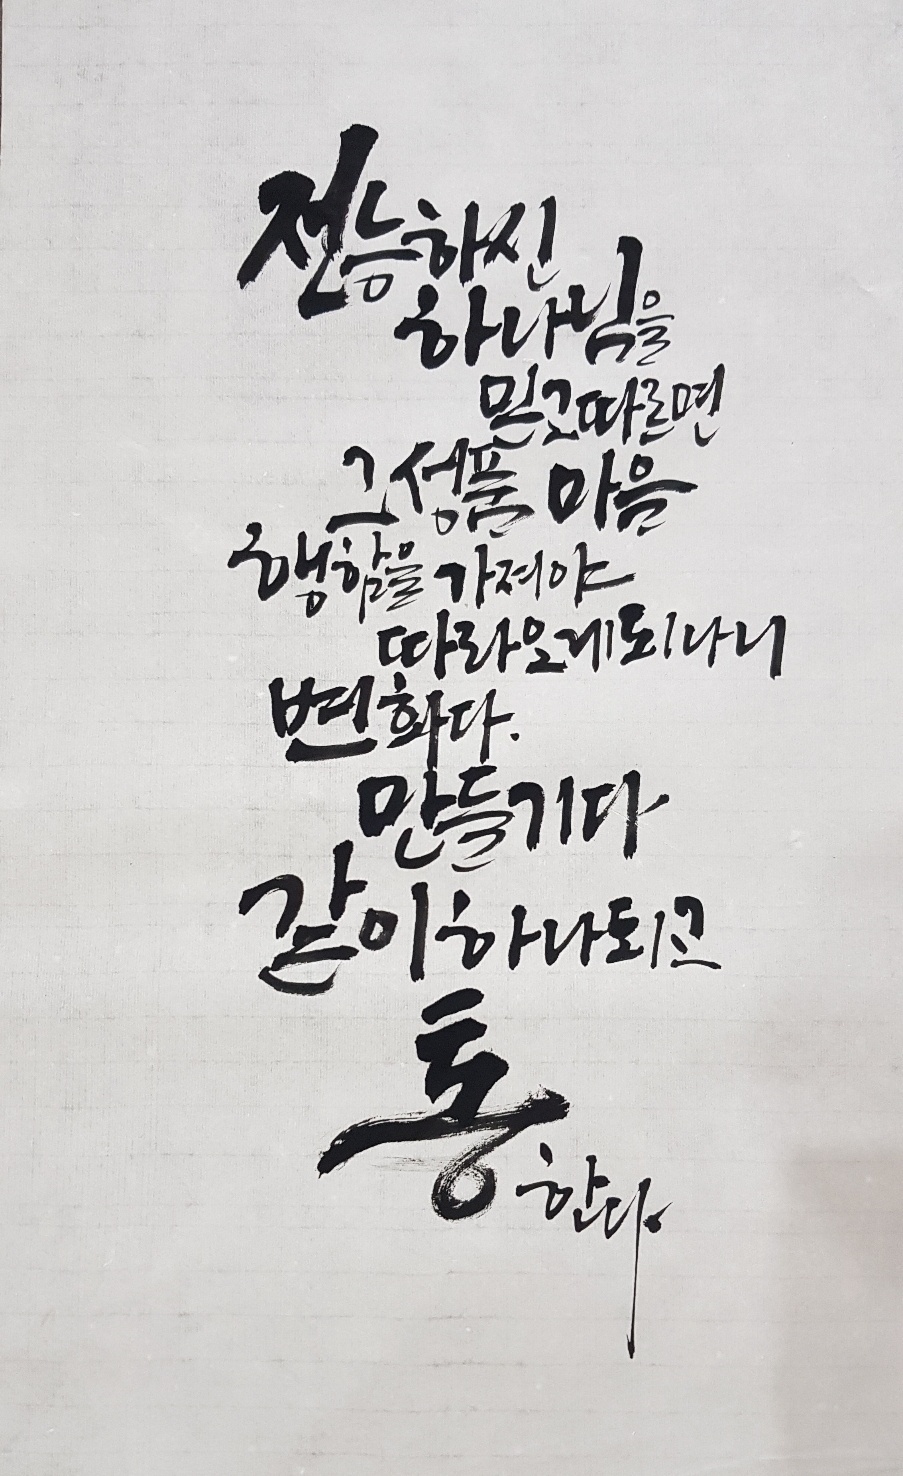 전능하신
하나님을
믿고 따르면
그 성품 마음
행함을 가져야
따라오게 되나니
변화다.
만들기다
같이 하나되고
통
한다